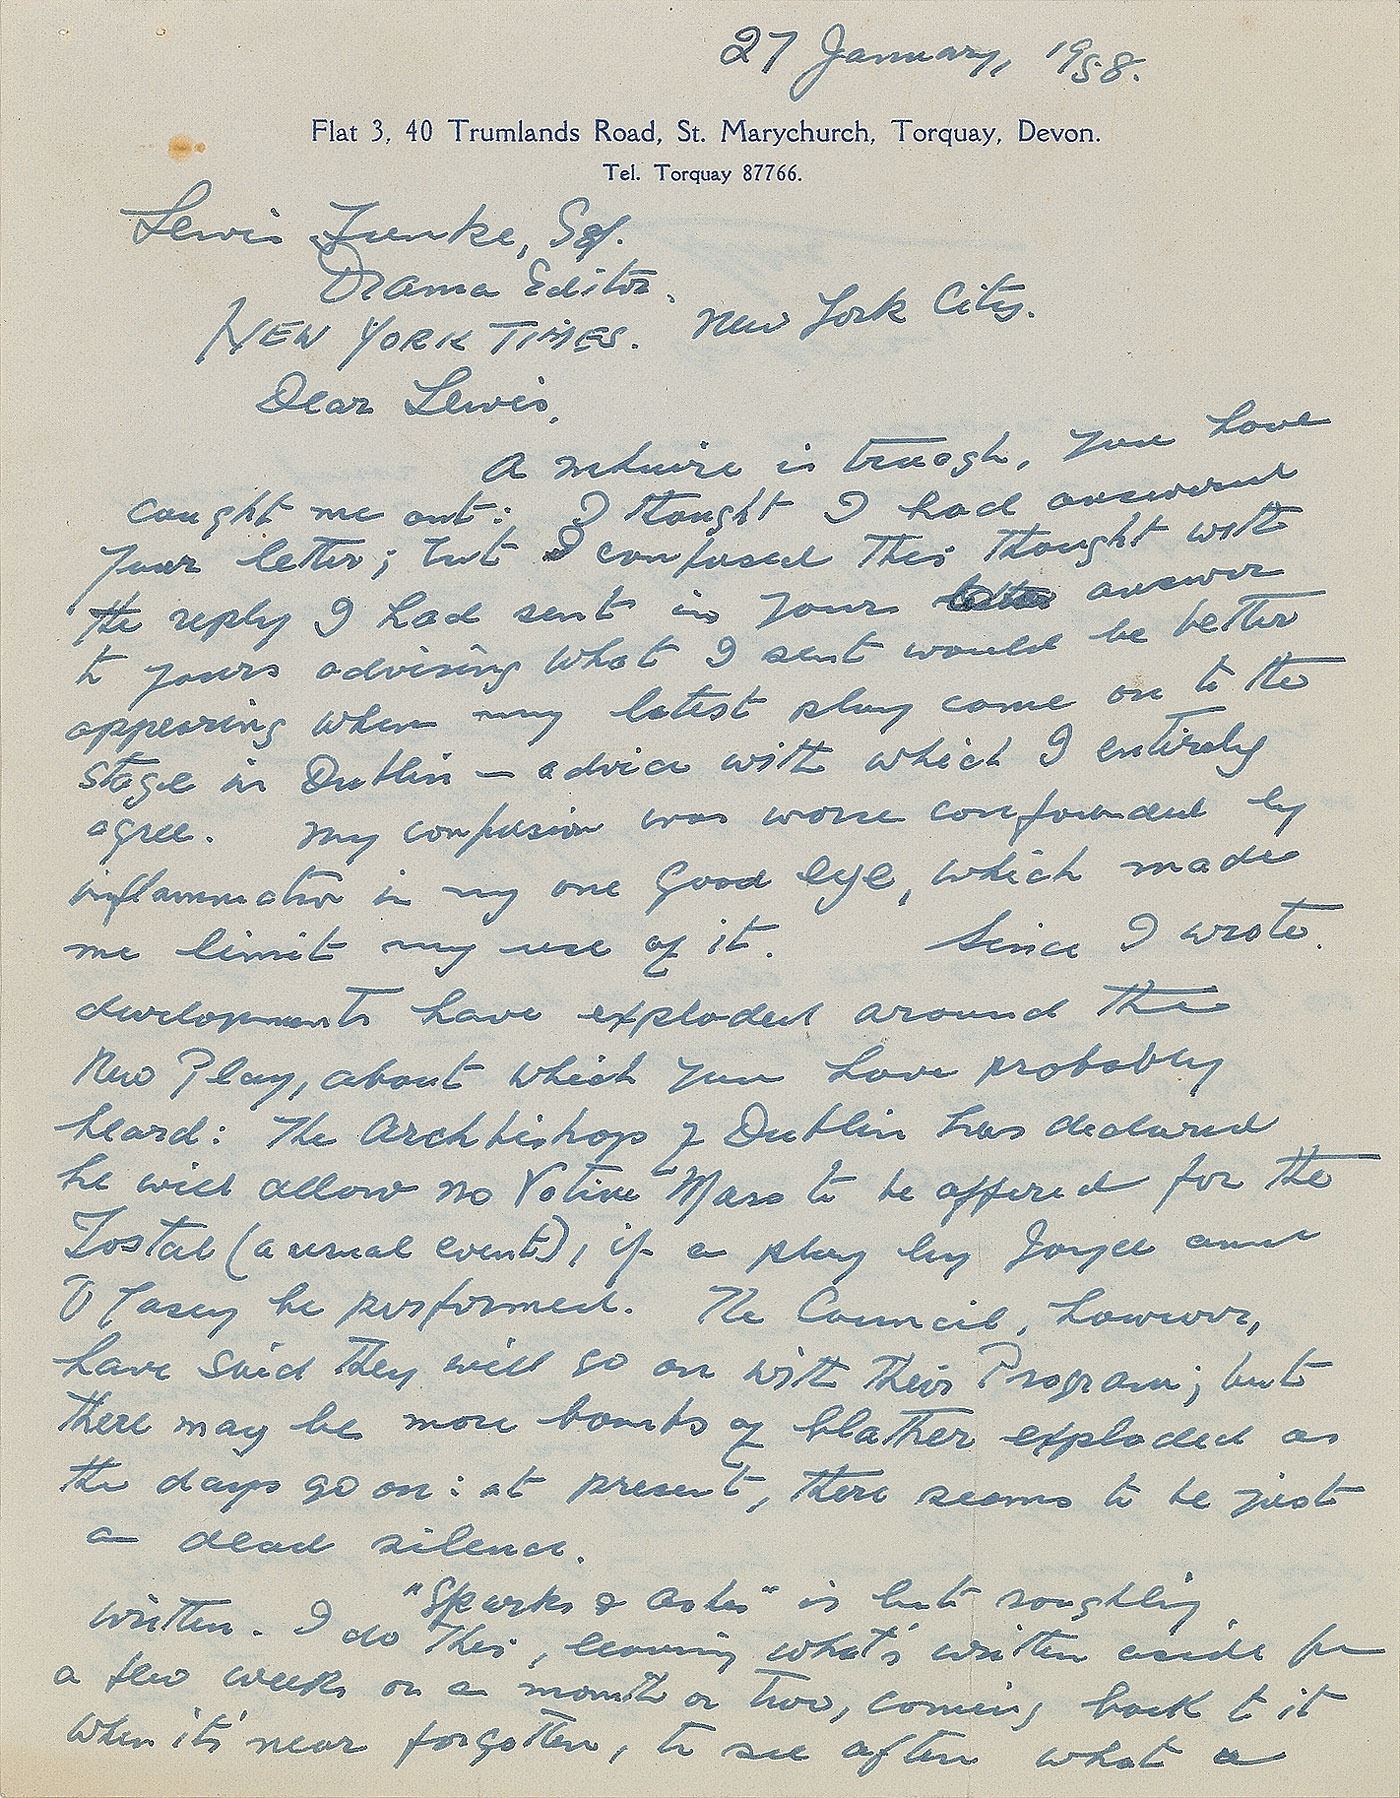 27 January, 1958.
Flat 3, 40 Trumlands Road, St. Marychurch, Torquay, Devon.
Tel. Torquay 87766.
Lewis Funke, Esq.
Drama Editor.
NEW YORK TIMES. New York City.
Dear Lewis,
A is truagh, you have
caught me out: I thought I had answered
your letter; but I confused this thought with
the reply I had sent in your answer
to yours advising what I sent would be better
appearing when my latest play came on to the
stage in Dublin — advice with which I entirely
agree. My confusion was worse confounded by
inflammation in my one good eye, which made
me limit my use of it. Since I wrote.
developments have exploded around the
New Play, about which you have probably
heard: The Archbishop of Dublin has declared
he will allow no Votive Mass to be offered for the
Tostal (a usual event), if a play by Joyce and
O'Casey be performed. The Council, however,
have said they will go on with their Program; but
there may be more bombs of blather exploded as
the days go on: at present, there seems to be just
a dead silence.
"Sparks & Ashes" is but roughly
written. I do this, leaving what's written aside for
a few weeks or a month or two, coming back to it
when it's near forgotten, to see often what a